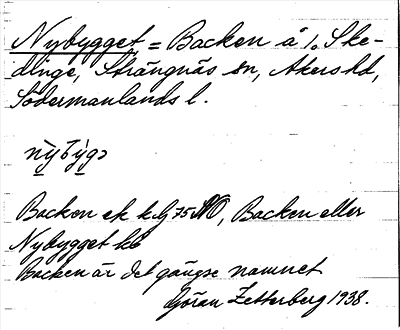 Nybygget = Backen å 1. Ske-
dinge, Strängnäs sn, Åkers hd,
Södermanlands l.
Backen ek kbl 75 NO, Backen eller
Nybygget kb
Backen är det gängse namnet
Göran Zetterberg 1938.